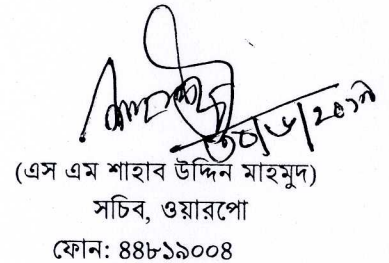 (এস এম শাহাব উদ্দিন মাহমুদ)
সচিব, ওয়ারপো
ফোন: ৪৪৮১৯০০৪